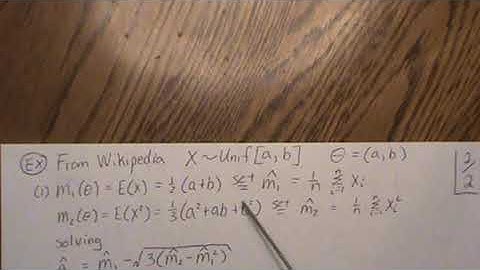 Ex From Wikipedia X ~ Unif [a, b] Θ = (a, b) 2/2
(1) m₁(θ) = E(X) = ½ (a+b) set= m̂₁ = 1/n Σᵢ₌₁ⁿ Xᵢ
m₂(θ) = E(X²) = ⅓ (a²+ab+b²) set= m̂₂ = 1/n Σᵢ₌₁ⁿ Xᵢ²
solving
â = m̂₁ - √3(m̂₂ - m̂₁²)